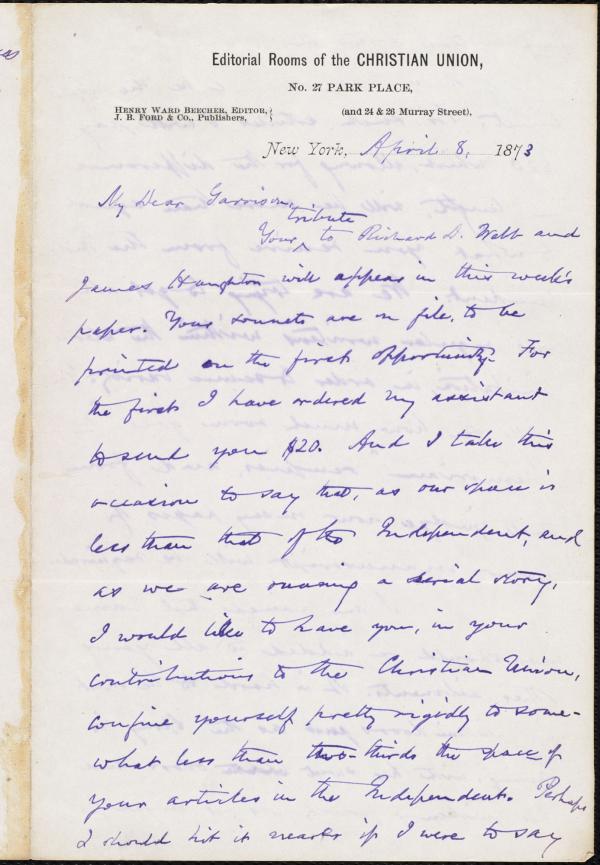 Editorial Rooms of the CHRISTIAN UNION,
No. 27 PARK PLACE,
HENRY WARD BEECHER, EDITOR,
J. B. FORD & CO., Publishers,
(and 24 & 26 Murray Street),
New York, April 8, 1873
My Dear Garrison,
tribute
Your ^ to Richard D. Webb and
James Haughton will appear in this week's
paper. Your sonnets are on file, to be
printed on the first opportunity. For
the first I have ordered my assistant
to send you $20. And I take this
occasion to say that, as our space is
less than that of the Independent, and
as we are running a serial story,
I would like to have you, in your
contributions to the Christian Union,
confine yourself pretty rigidly to some-
what less than two-thirds the space of
your articles in the Independent. Perhaps
I should hit it nearer if I were to say